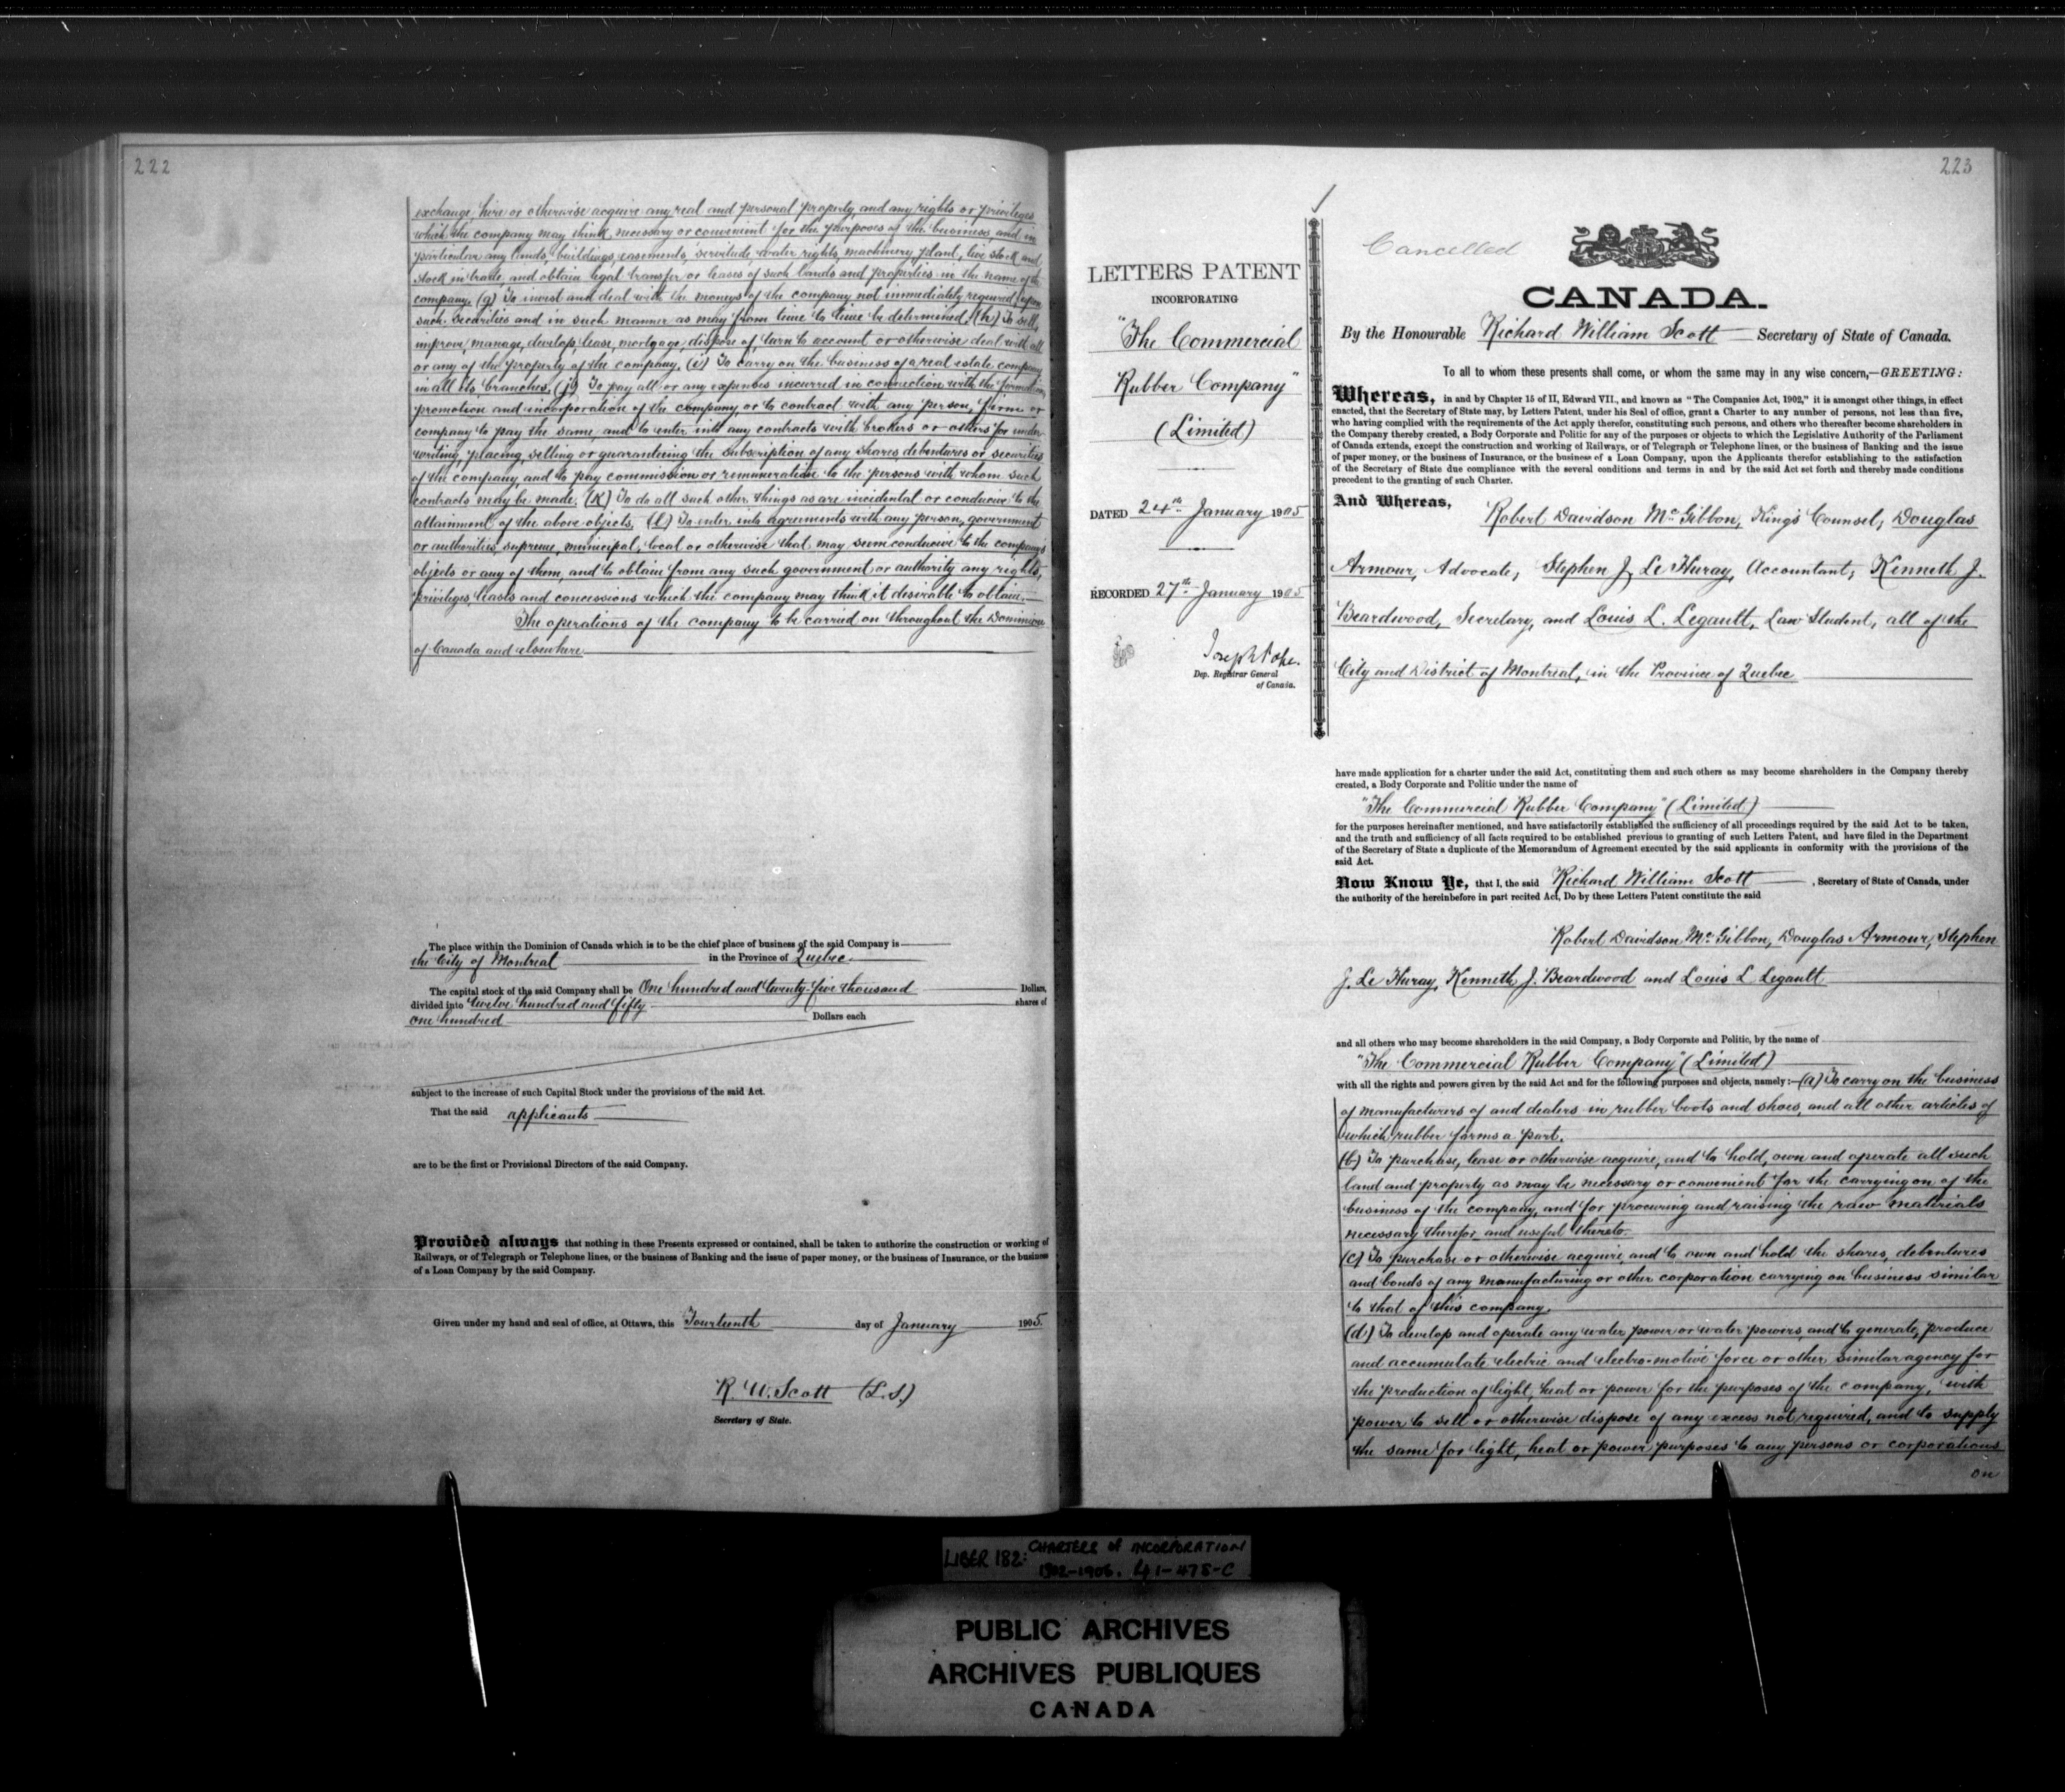 222
exchange, hire or otherwise acquire any real and personal property, and any rights or privileges
which the company may think necessary or convenient for the purposes of the business and in
particular any lands, buildings, easements, servitude, water rights, machinery, plant, live stock and
stock in trade, and obtain legal transfer or leases of such lands and properties in the name of the
company. (g) To invest and deal with the moneys of the company not immediately required upon
such securities and in such manner as may from time to time be determined. (h) To sell,
improve, manage, develop, lease, mortgage, dispose of, turn to account or otherwise deal with all
or any of the property of the company. (i) To carry on the business of a real estate company
in all its branches. (j) To pay all or any expenses incurred in connection with the formation,
promotion and incorporation of the company, or to contract with any person, firm or
company to pay the same, and to enter into any contracts with brokers or others for under-
writing, placing, selling or guaranteeing the subscription of any shares debentures or securities
of the company, and to pay commission or remuneration to the persons with whom such
contracts may be made. (k) To do all such other things as are incidental or conducive to the
attainment of the above objects. (l) To enter into agreements with any person, government
or authorities, supreme, municipal, local or otherwise that may seem conducive to the company's
objects or any of them, and to obtain from any such government or authority any rights,
privileges, leases and concessions which the company may think it desirable to obtain.
The operations of the company to be carried on throughout the Dominion
of Canada and elsewhere
The place within the Dominion of Canada which is to be the chief place of business of the said Company is
the City of Montreal in the Province of Quebec
The capital stock of the said Company shall be One hundred and twenty-five thousand Dollars,
divided into twelve hundred and fifty shares of
one hundred Dollars each
subject to the increase of such Capital Stock under the provisions of the said Act.
That the said applicants
are to be the first or Provisional Directors of the said Company.
Provided always that nothing in these Presents expressed or contained, shall be taken to authorize the construction or working of
Railways, or of Telegraph or Telephone lines, or the business of Banking and the issue of paper money, or the business of Insurance, or the business
of a Loan Company by the said Company.
Given under my hand and seal of office, at Ottawa, this Fourteenth day of January 1905.
R. W. Scott (L.S.)
Secretary of State.
223
LETTERS PATENT
INCORPORATING
"The Commercial
Rubber Company"
(Limited)
DATED 24th January 1905
RECORDED 27th January 1905
Joseph Pope.
Dep. Registrar General
of Canada.
Cancelled
CANADA.
By the Honourable Richard William Scott Secretary of State of Canada.
To all to whom these presents shall come, or whom the same may in any wise concern,—GREETING:
Whereas, in and by Chapter 15 of II, Edward VII., and known as "The Companies Act, 1902," it is amongst other things, in effect
enacted, that the Secretary of State may, by Letters Patent, under his Seal of office, grant a Charter to any number of persons, not less than five,
who having complied with the requirements of the Act apply therefor, constituting such persons, and others who thereafter become shareholders in
the Company thereby created, a Body Corporate and Politic for any of the purposes or objects to which the Legislative Authority of the Parliament
of Canada extends, except the construction and working of Railways, or of Telegraph or Telephone lines, or the business of Banking and the issue
of paper money, or the business of Insurance, or the business of a Loan Company, upon the Applicants therefor establishing to the satisfaction
of the Secretary of State due compliance with the several conditions and terms in and by the said Act set forth and thereby made conditions
precedent to the granting of such Charter.
And Whereas,
Robert Davidson McGibbon, King's Counsel, Douglas
Armour, Advocate, Stephen J. Le Huray, Accountant, Kenneth J.
Beardwood, Secretary, and Louis L. Legault, Law Student, all of the
City and District of Montreal, in the Province of Quebec
have made application for a charter under the said Act, constituting them and such others as may become shareholders in the Company thereby
created, a Body Corporate and Politic under the name of
"The Commercial Rubber Company" (Limited)
for the purposes hereinafter mentioned, and have satisfactorily established the sufficiency of all proceedings required by the said Act to be taken,
and the truth and sufficiency of all facts required to be established previous to granting of such Letters Patent, and have filed in the Department
of the Secretary of State a duplicate of the Memorandum of Agreement executed by the said applicants in conformity with the provisions of the
said Act.
Now Know Ye, that I, the said Richard William Scott , Secretary of State of Canada, under
the authority of the hereinbefore in part recited Act, Do by these Letters Patent constitute the said
Robert Davidson McGibbon, Douglas Armour, Stephen
J. Le Huray, Kenneth J. Beardwood and Louis L. Legault
and all others who may become shareholders in the said Company, a Body Corporate and Politic, by the name of
"The Commercial Rubber Company" (Limited)
with all the rights and powers given by the said Act and for the following purposes and objects, namely:—(a) To carry on the business
of manufacturers of and dealers in rubber boots and shoes, and all other articles of
which rubber forms a part.
(b) To purchase, lease or otherwise acquire, and to hold, own and operate all such
land and property as may be necessary or convenient for the carrying on of the
business of the company, and for procuring and raising the raw materials
necessary therefor and useful thereto.
(c) To purchase or otherwise acquire, and to own and hold the shares, debentures
and bonds of any manufacturing or other corporation carrying on business similar
to that of this company.
(d) To develop and operate any water power or water powers, and to generate, produce
and accumulate electric and electro-motive force or other similar agency for
the production of light, heat or power for the purposes of the company, with
power to sell or otherwise dispose of any excess not required, and to supply
the same for light, heat or power purposes to any persons or corporations
on
LIBER 182: CHARTERS of INCORPORATION
1902-1905. 41-478-C
PUBLIC ARCHIVES
ARCHIVES PUBLIQUES
CANADA